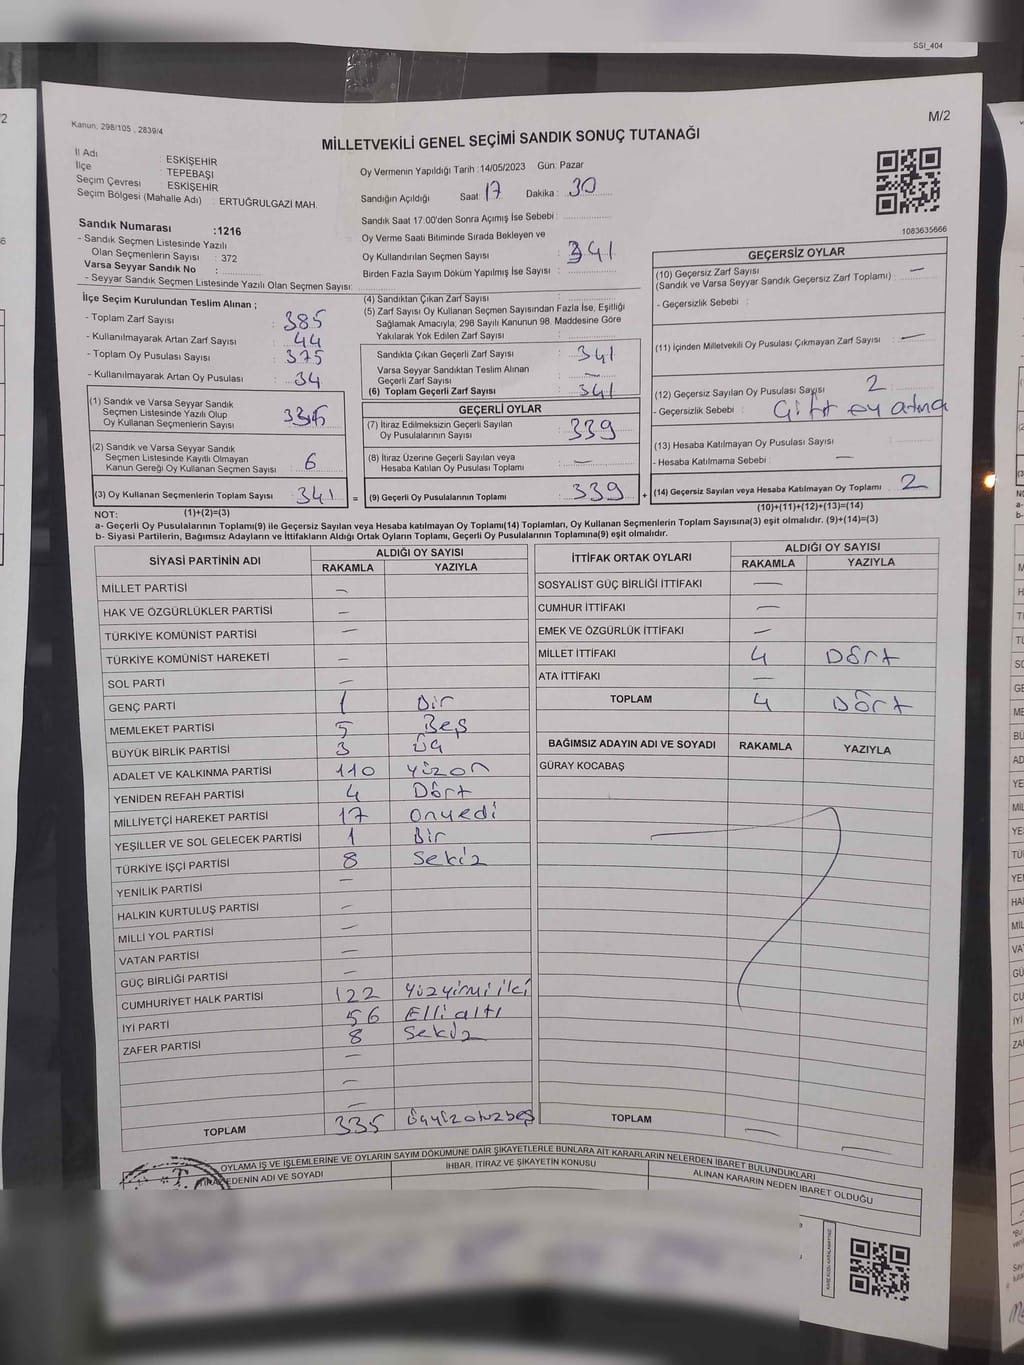 SSI_404
Kanun, 298/105 , 2839/4
M/2
MİLLETVEKİLİ GENEL SEÇİMİ SANDIK SONUÇ TUTANAĞI
İl Adı : ESKİŞEHİR
İlçe : TEPEBAŞI
Seçim Çevresi : ESKİŞEHİR
Seçim Bölgesi (Mahalle Adı) : ERTUĞRULGAZİ MAH.
Oy Vermenin Yapıldığı Tarih :14/05/2023 Gün: Pazar
Sandığın Açıldığı Saat : 17 Dakika : 30
Sandık Saat 17:00'den Sonra Açımış İse Sebebi :
Oy Verme Saati Bitiminde Sırada Bekleyen ve
Oy Kullandırılan Seçmen Sayısı : 341
Birden Fazla Sayım Döküm Yapılmış İse Sayısı :
1083635666
Sandık Numarası :1216
- Sandık Seçmen Listesinde Yazılı
Olan Seçmenlerin Sayısı : 372
Varsa Seyyar Sandık No :
- Seyyar Sandık Seçmen Listesinde Yazılı Olan Seçmen Sayısı:
İlçe Seçim Kurulundan Teslim Alınan ;
- Toplam Zarf Sayısı : 385
- Kullanılmayarak Artan Zarf Sayısı : 44
- Toplam Oy Pusulası Sayısı : 375
- Kullanılmayarak Artan Oy Pusulası : 34
(1) Sandık ve Varsa Seyyar Sandık
Seçmen Listesinde Yazılı Olup
Oy Kullanan Seçmenlerin Sayısı : 335
(2) Sandık ve Varsa Seyyar Sandık
Seçmen Listesinde Kayıtlı Olmayan
Kanun Gereği Oy Kullanan Seçmen Sayısı : 6
(3) Oy Kullanan Seçmenlerin Toplam Sayısı : 341 =
(4) Sandıktan Çıkan Zarf Sayısı :
(5) Zarf Sayısı Oy Kullanan Seçmen Sayısından Fazla İse, Eşitliği
Sağlamak Amacıyla; 298 Sayılı Kanunun 98. Maddesine Göre
Yakılarak Yok Edilen Zarf Sayısı :
Sandıkta Çıkan Geçerli Zarf Sayısı : 341
Varsa Seyyar Sandıktan Teslim Alınan
Geçerli Zarf Sayısı : —
(6) Toplam Geçerli Zarf Sayısı : 341
GEÇERLİ OYLAR
(7) İtiraz Edilmeksizin Geçerli Sayılan
Oy Pusulalarının Sayısı : 339
(8) İtiraz Üzerine Geçerli Sayılan veya
Hesaba Katılan Oy Pusulası Toplamı : —
(9) Geçerli Oy Pusulalarının Toplamı : 339 +
GEÇERSİZ OYLAR
(10) Geçersiz Zarf Sayısı : —
(Sandık ve Varsa Seyyar Sandık Geçersiz Zarf Toplamı)
- Geçersizlik Sebebi :
(11) İçinden Milletvekili Oy Pusulası Çıkmayan Zarf Sayısı : —
(12) Geçersiz Sayılan Oy Pusulası Sayısı : 2
- Geçersizlik Sebebi : Çift oy atma
(13) Hesaba Katılmayan Oy Pusulası Sayısı :
- Hesaba Katılmama Sebebi : —
(14) Geçersiz Sayılan veya Hesaba Katılmayan Oy Toplamı : 2
NOT: (1)+(2)=(3)
(10)+(11)+(12)+(13)=(14)
a- Geçerli Oy Pusulalarının Toplamı(9) ile Geçersiz Sayılan veya Hesaba katılmayan Oy Toplamı(14) Toplamları, Oy Kullanan Seçmenlerin Toplam Sayısına(3) eşit olmalıdır. (9)+(14)=(3)
b- Siyasi Partilerin, Bağımsız Adayların ve İttifakların Aldığı Ortak Oyların Toplamı, Geçerli Oy Pusulalarının Toplamına(9) eşit olmalıdır.
SİYASİ PARTİNİN ADI ALDIĞI OY SAYISI
RAKAMLA YAZIYLA
MİLLET PARTİSİ —
HAK VE ÖZGÜRLÜKLER PARTİSİ —
TÜRKİYE KOMÜNİST PARTİSİ —
TÜRKİYE KOMÜNİST HAREKETİ —
SOL PARTİ —
GENÇ PARTİ 1 Bir
MEMLEKET PARTİSİ 5 Beş
BÜYÜK BİRLİK PARTİSİ 3 Üç
ADALET VE KALKINMA PARTİSİ 110 Yüzon
YENİDEN REFAH PARTİSİ 4 Dört
MİLLİYETÇİ HAREKET PARTİSİ 17 Onyedi
YEŞİLLER VE SOL GELECEK PARTİSİ 1 Bir
TÜRKİYE İŞÇİ PARTİSİ 8 Sekiz
YENİLİK PARTİSİ —
HALKIN KURTULUŞ PARTİSİ —
MİLLİ YOL PARTİSİ —
VATAN PARTİSİ —
GÜÇ BİRLİĞİ PARTİSİ —
CUMHURİYET HALK PARTİSİ 122 Yüzyirmi iki
İYİ PARTİ 56 Elli altı
ZAFER PARTİSİ 8 Sekiz
—
—
—
TOPLAM 335 Üçyüzotuzbeş
İTTİFAK ORTAK OYLARI ALDIĞI OY SAYISI
RAKAMLA YAZIYLA
SOSYALİST GÜÇ BİRLİĞİ İTTİFAKI —
CUMHUR İTTİFAKI —
EMEK VE ÖZGÜRLÜK İTTİFAKI —
MİLLET İTTİFAKI 4 Dört
ATA İTTİFAKI —
TOPLAM 4 Dört
BAĞIMSIZ ADAYIN ADI VE SOYADI RAKAMLA YAZIYLA
GÜRAY KOCABAŞ
TOPLAM — —
OYLAMA İŞ VE İŞLEMLERİNE VE OYLARIN SAYIM DÖKÜMÜNE DAİR ŞİKAYETLERLE BUNLARA AİT KARARLARIN NELERDEN İBARET BULUNDUKLARI
EDENİN ADI VE SOYADI İHBAR, İTİRAZ VE ŞİKAYETİN KONUSU ALINAN KARARIN NEDEN İBARET OLDUĞU